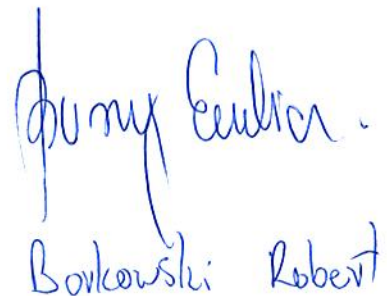 Emilia.
Borkowški Robert